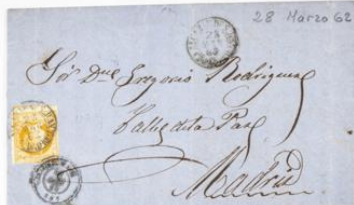 28 Marzo 62
Sor Dn Gregorio Rodriguez
Calle de la Paz
Madrid